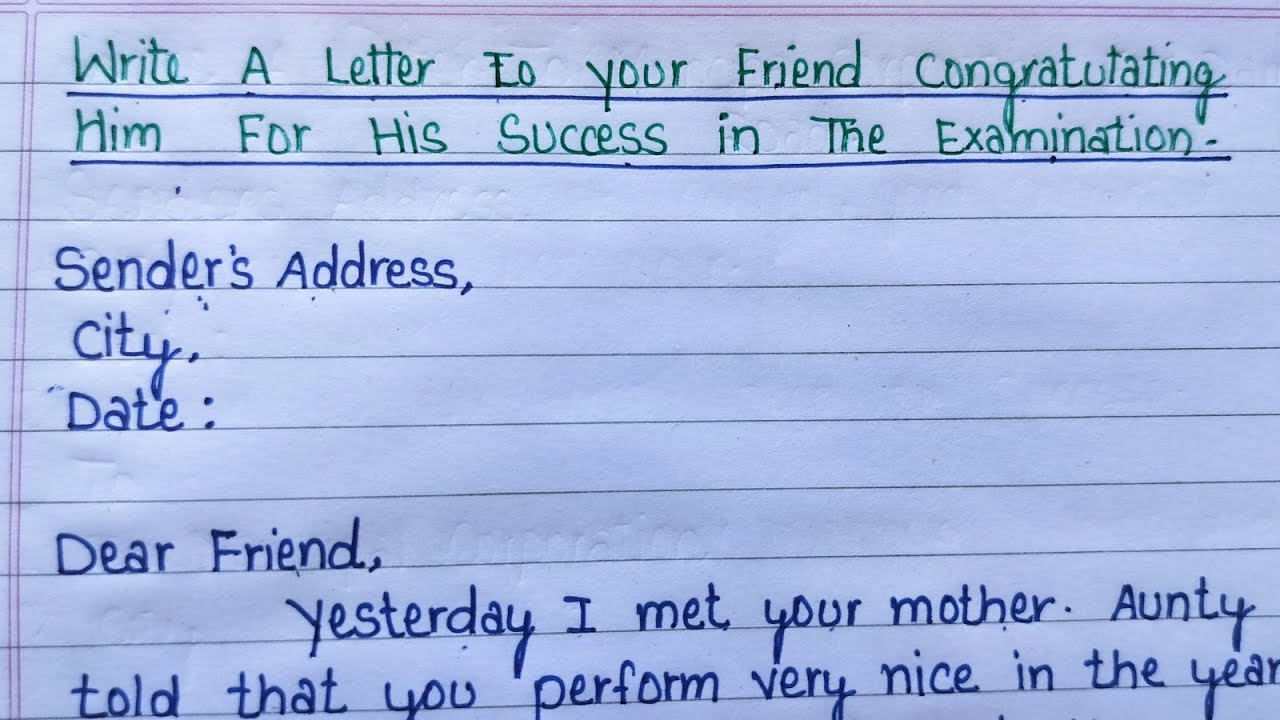 Write A Letter To your Friend Congratutating
Him For His Success in The Examination.
Sender's Address,
City,
Date:
Dear Friend,
yesterday I met your mother. Aunty
told that you perform very nice in the year